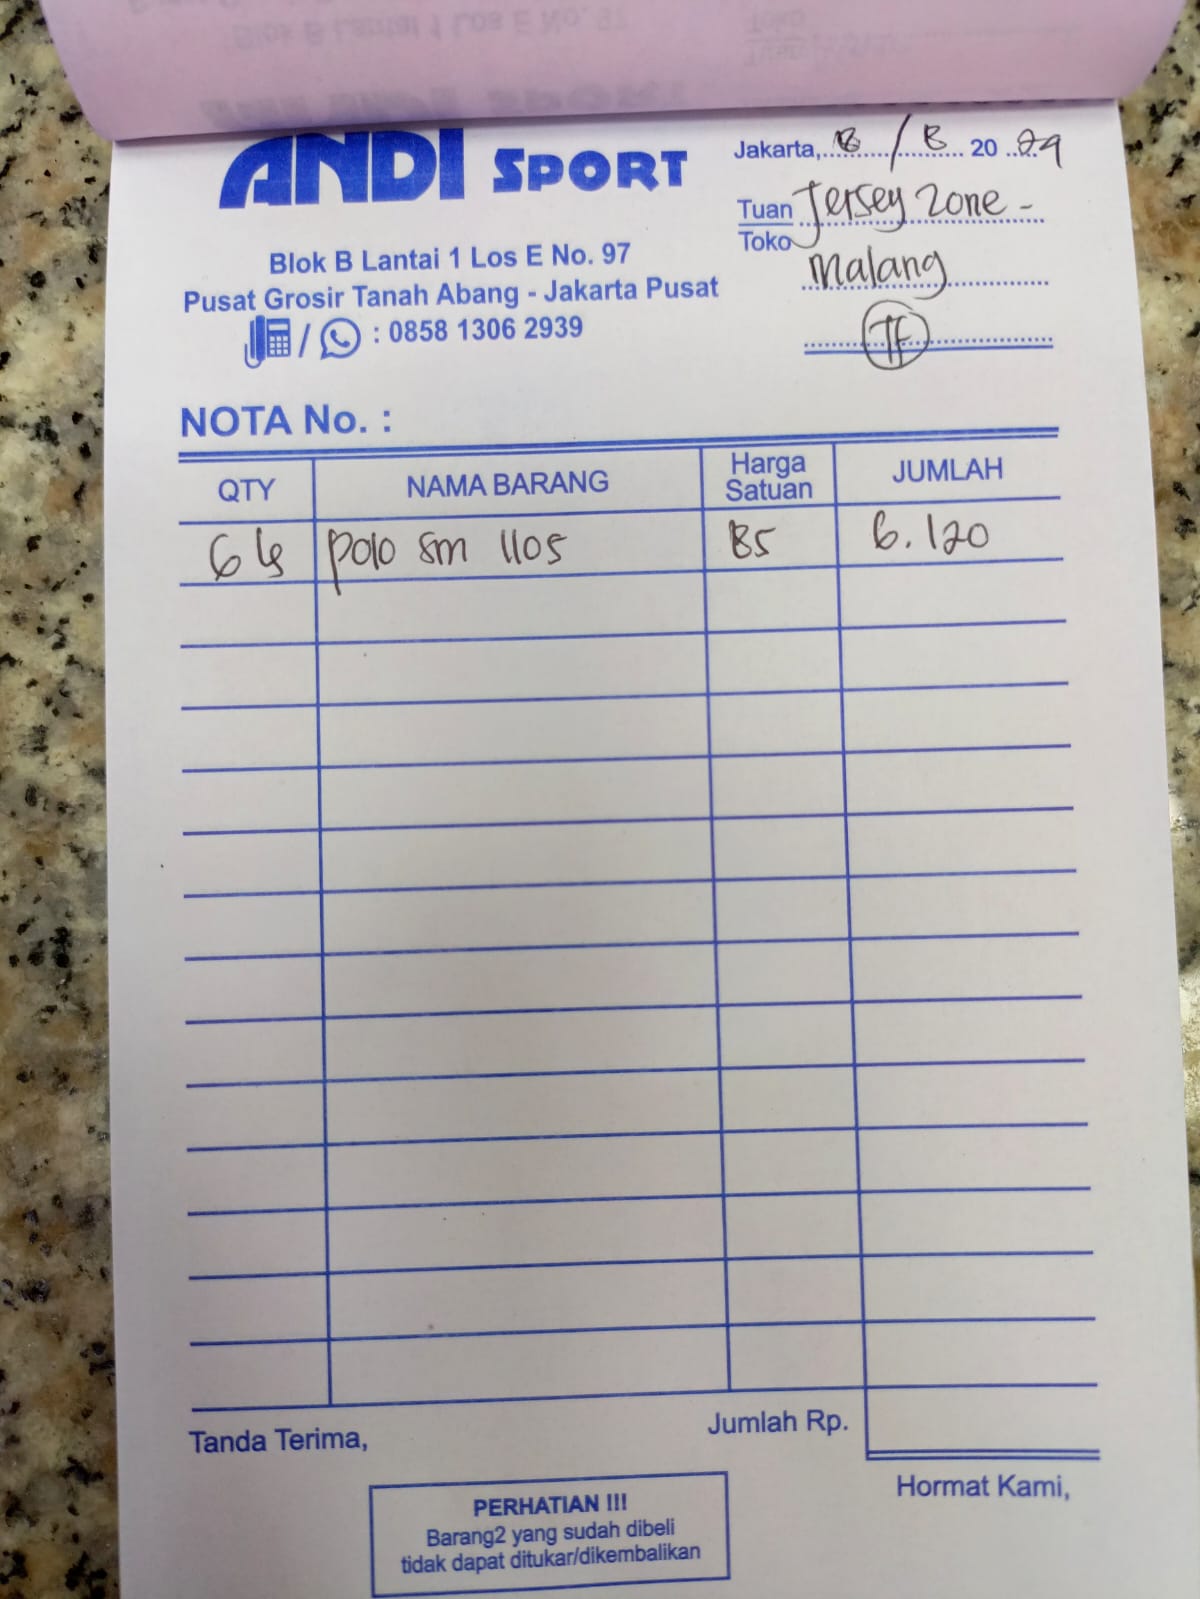 ANDI SPORT
Blok B Lantai 1 Los E No. 97
Pusat Grosir Tanah Abang - Jakarta Pusat
/ : 0858 1306 2939
Jakarta, 8 / 8 20 24
Tuan Jersey Zone -
Toko
Malang
TF
NOTA No. :
QTY NAMA BARANG Harga Satuan JUMLAH
6 ls polo sm 1105 85 6.120
Tanda Terima,
Jumlah Rp.
Hormat Kami,
PERHATIAN !!!
Barang2 yang sudah dibeli
tidak dapat ditukar/dikembalikan